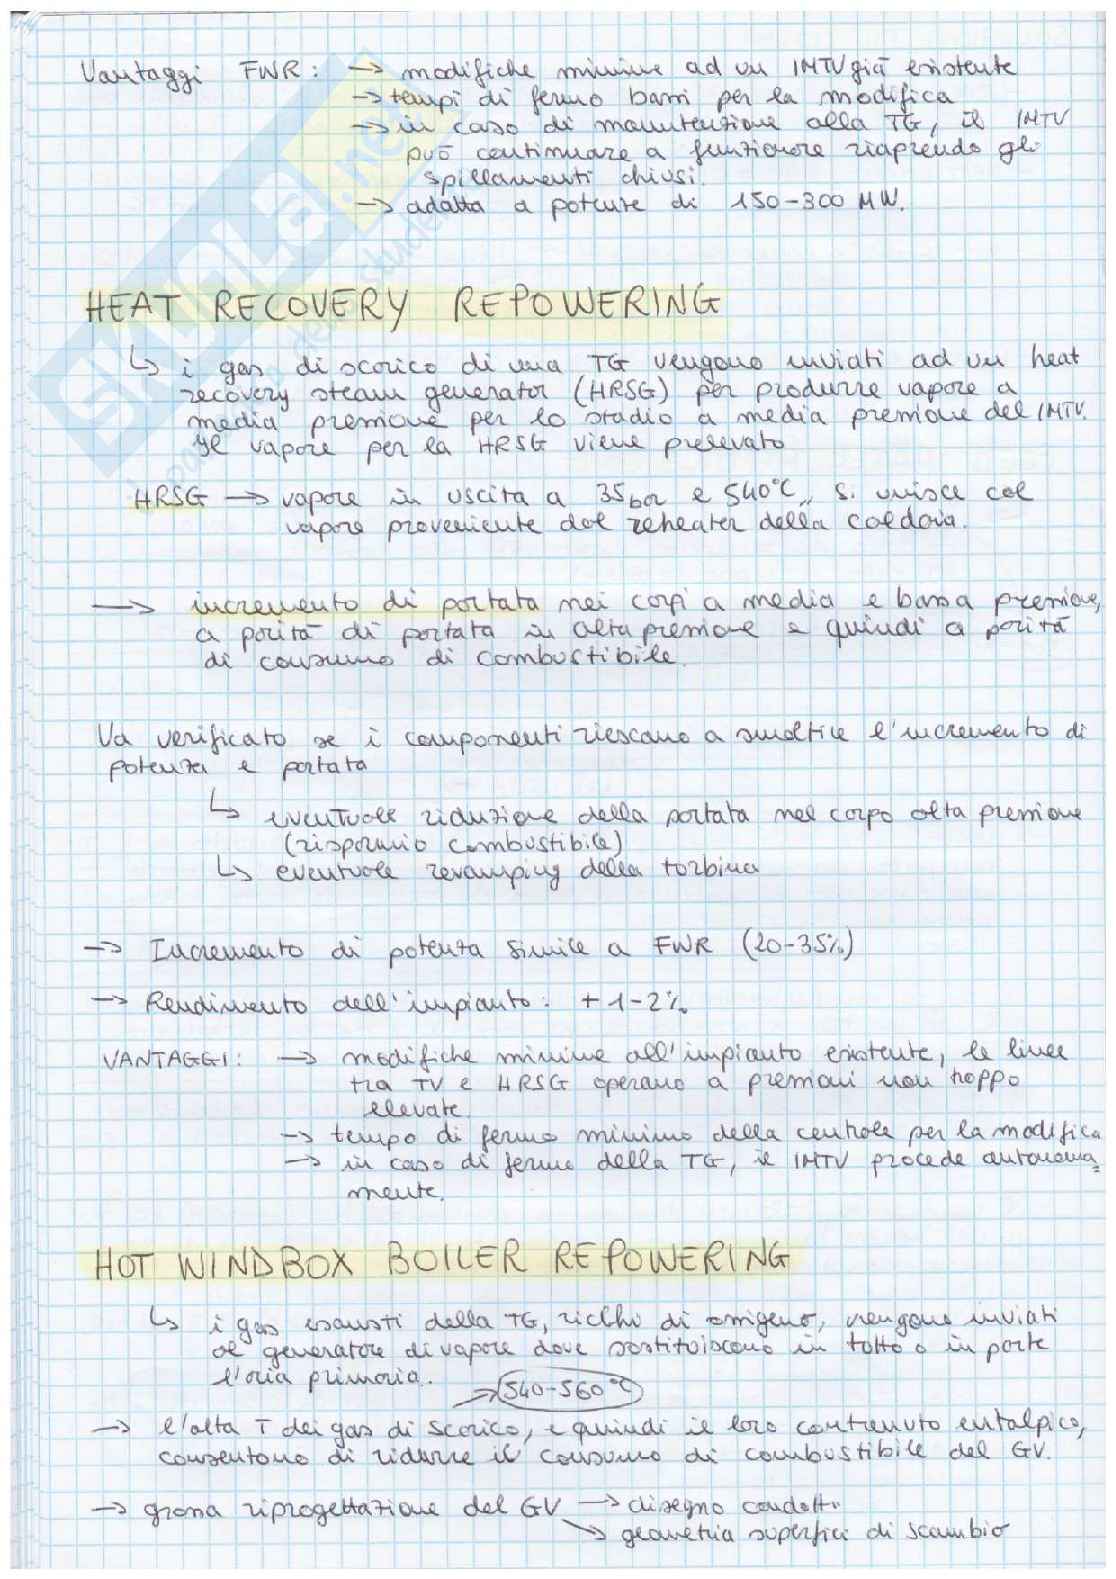 Vantaggi FWR: → modifiche minime ad un IMTV già esistente
→ tempi di fermo bassi per la modifica
→ in caso di manutenzione alla TG, il IMTV
può continuare a funzionare riaprendo gli
spillamenti chiusi.
→ adatta a potenze di 150-300 MW.
HEAT RECOVERY REPOWERING
↳ i gas di scarico di una TG vengono inviati ad un heat
recovery steam generator (HRSG) per produrre vapore a
media pressione per lo stadio a media pressione del IMTV.
Il vapore per la HRSG viene prelevato
HRSG → vapore in uscita a 35bar e 540°C, si unisce col
vapore proveniente dal reheater della caldaia.
→ incremento di portata nei corpi a media e bassa pressione,
a parità di portata in alta pressione e quindi a parità
di consumo di combustibile.
Va verificato se i componenti riescano a smaltire l'incremento di
potenza e portata
↳ eventuale riduzione della portata nel corpo alta pressione
(risparmio combustibile)
↳ eventuale revamping della turbina
→ Incremento di potenza simile a FWR (20-35%)
→ Rendimento dell'impianto: +1-2%
VANTAGGI: → modifiche minime all'impianto esistente, le linee
tra TV e HRSG operano a pressioni non troppo
elevate.
→ tempo di fermo minimo della centrale per la modifica
→ in caso di fermo della TG, il IMTV procede autonoma=
mente.
HOT WINDBOX BOILER REPOWERING
↳ i gas esausti della TG, ricchi di ossigeno, vengono inviati
al generatore di vapore dove sostituiscono in tutto o in parte
l'aria primaria. → 540-560°C
→ l'alta T dei gas di scarico, e quindi il loro contenuto entalpico,
consentono di ridurre il consumo di combustibile del GV.
→ grossa riprogettazione del GV → disegno condotti
→ geometria superfici di scambio
SKUOLA.net